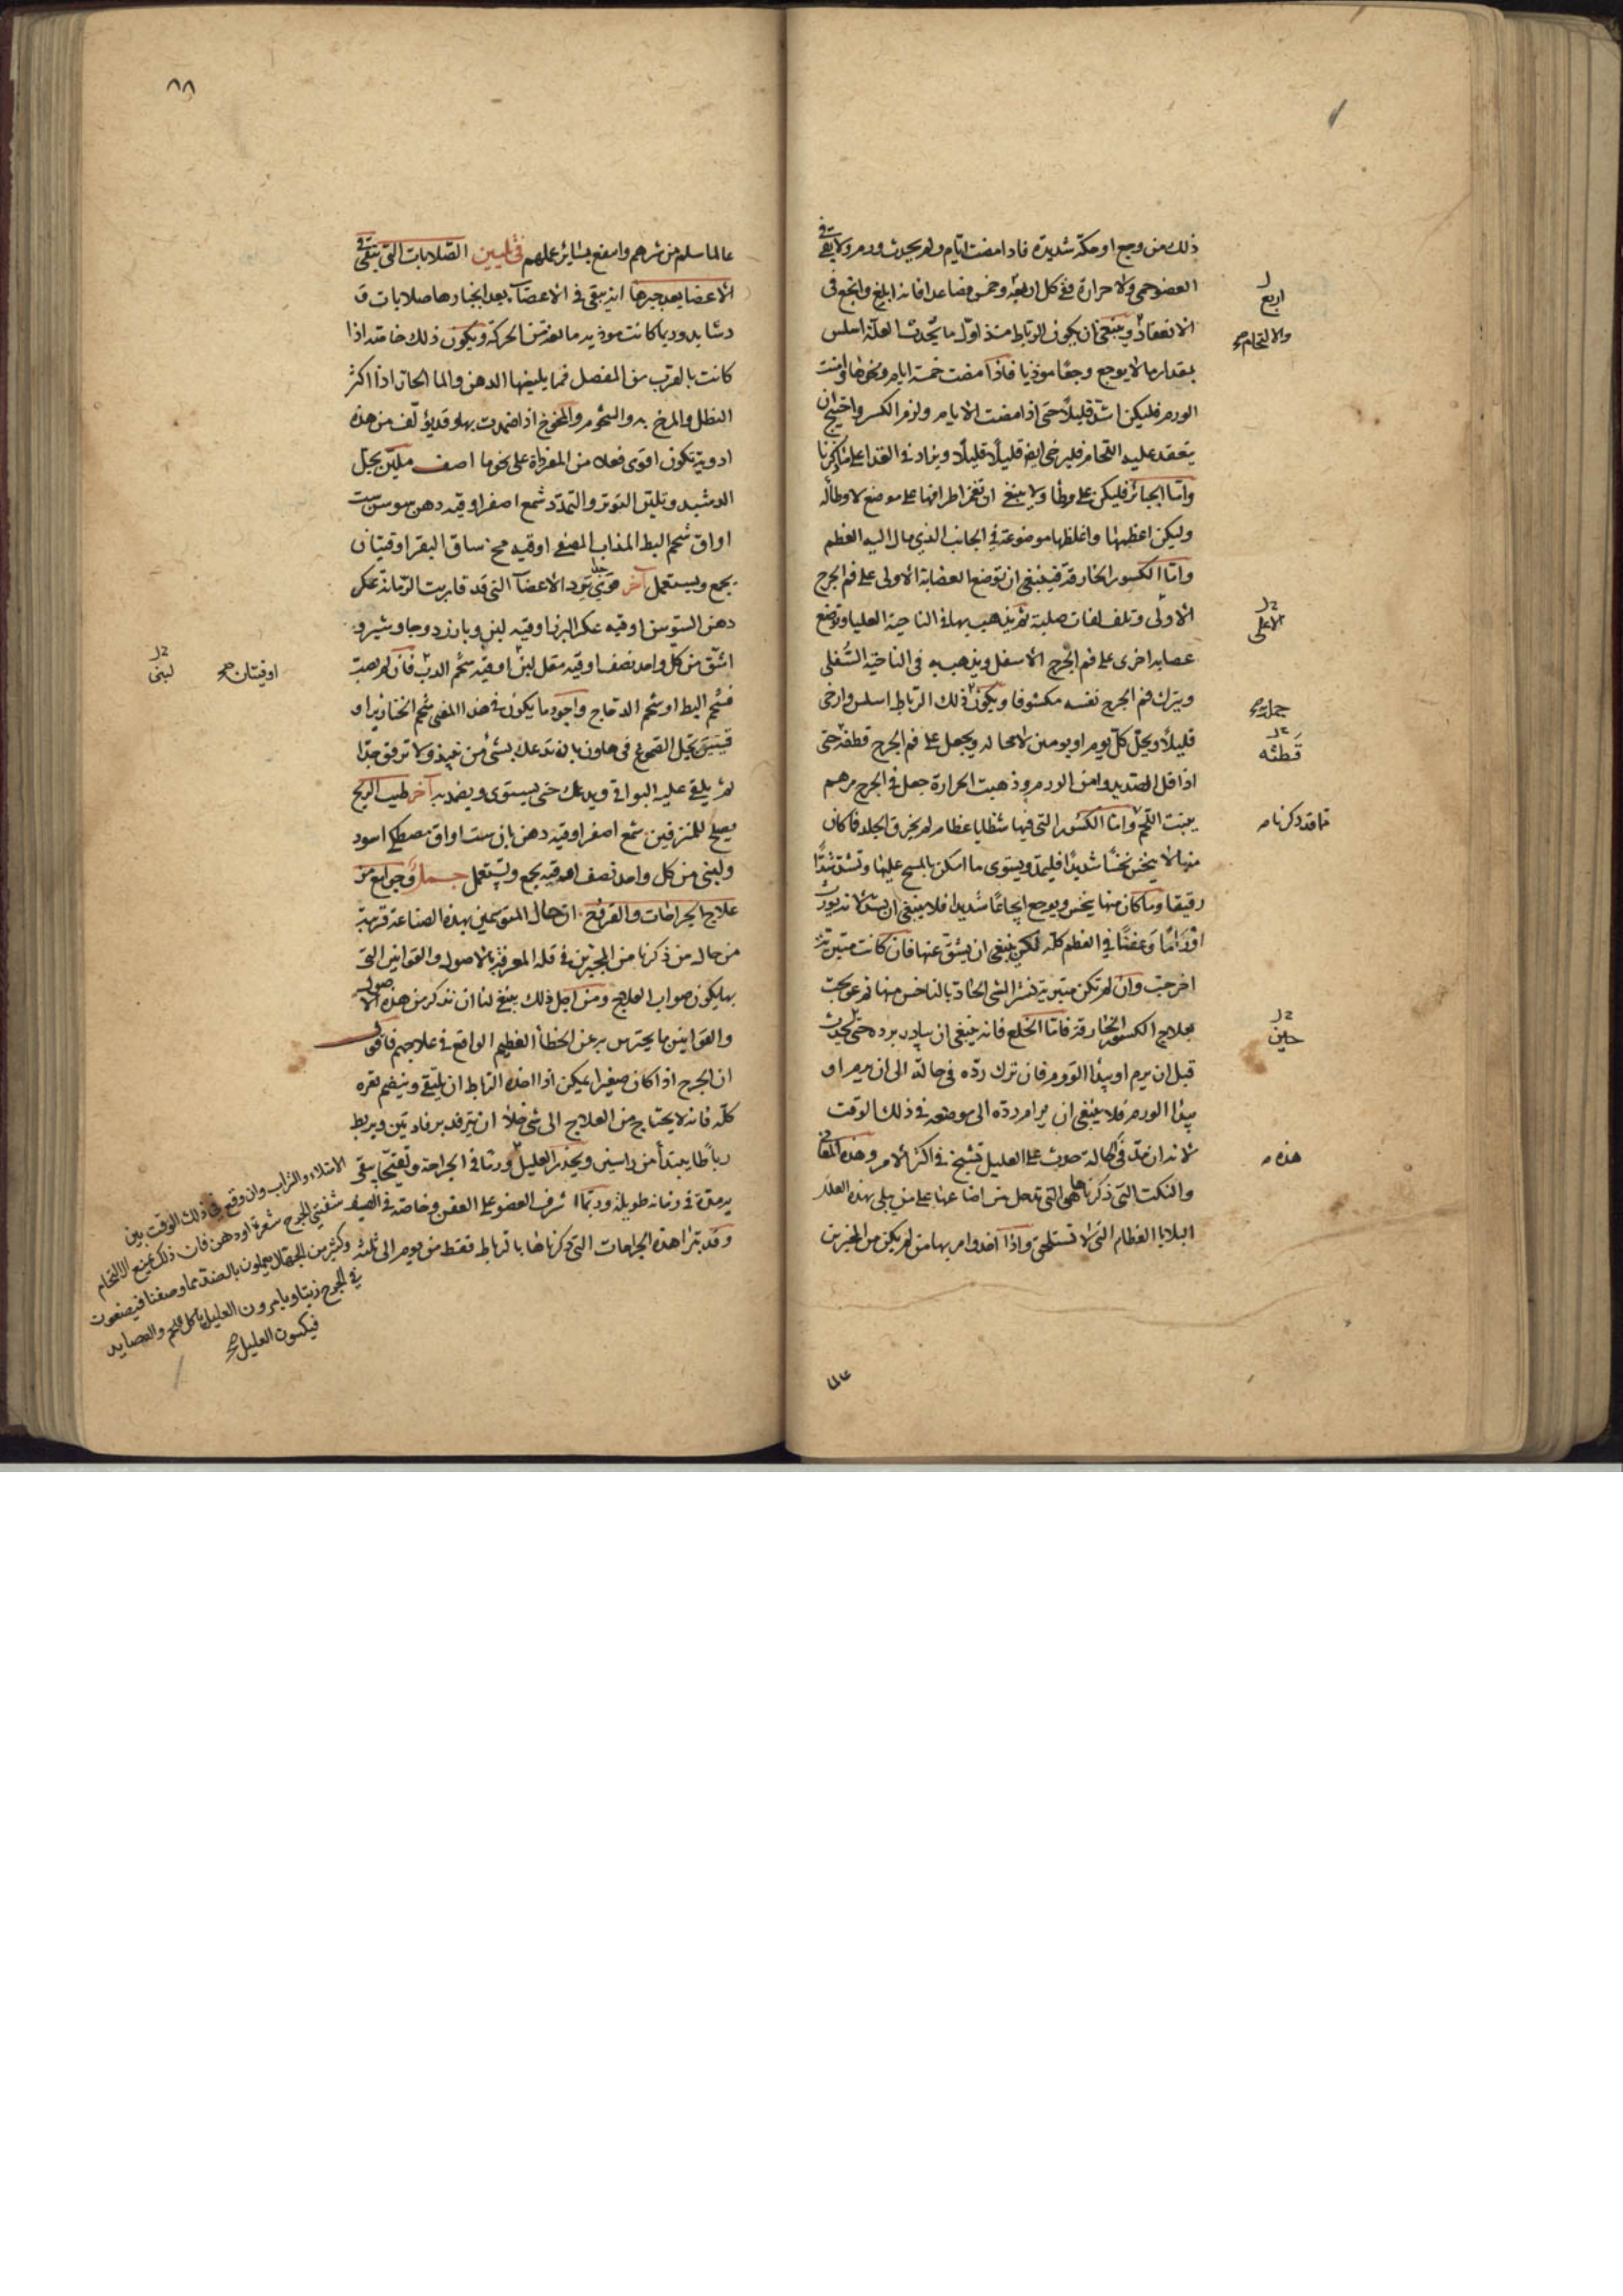 ذلك من وجع او حكة شديدة فاذا مضت ايام ولم يحدث ورم ولا بقى في
العضو حمى ولا حرارة ففي كل اربعة وخمس فصاعدا فانه ابلغ وانجع في
الانعقاد وينبغي ان يكون الرباط منذ اول ما يحدث العلة اسلس
بمقدار ما لا يوجع وجعا موذيا فاذا مضت خمسة ايام ونحوها وامنت
الورم فليكن اشد قليلا حتى اذا مضت الايام ولزم الكسر واحتيج ان
يتعقد عليه اللحام فليرخى ايضا قليلا قليلا ويزاد في الغذا على ما ذكرنا
واما الجبائر فليكن على وطا ولا ينبغي ان تغمز اطرافها على موضع لا وطا له
وليكن اعظمها واغلظها موضوعة في الجانب الذي مال اليه العظم
واما الكسور الخارقة فينبغي ان توضع العصابة الاولى على فم الجرح
الاولى وتلف لفات صلبة ثم يذهب بها الى الناحية العليا وتوضع
عصابه اخرى على فم الجرح الاسفل ويذهب به في الناحية السفلى
ويترك فم الجرح نفسه مكشوفا ويكون ذلك الرباط اسلس وارخى
قليلا ويحل كل يوم او يومين لا محاله ويجعل على فم الجرح قطنة حتى
اذا قل الصديد وامن الورم وذهبت الحرارة جعل في الجرح مرهم
ينبت اللحم واما الكسور التي فيها شظايا عظام لم يخرق الجلد فما كان
منها لا ينخس نخسا شديدا فليمد ويستوى ما امكن بالمسح عليها وتشد شدا
رقيقا وما كان منها ينخس ويوجع ايجاعا شديدا فلا ينبغي ان يشد لانه يورث
اوراما وعفنا في العظم كله لكن ينبغي ان يشق عنها فان كانت متبرية
اخرجت وان لم تكن متبرية نشر الشى الحاد بالناخس منها ثم عولجت
بعلاج الكسور الخارقة فاما الخلع فانه ينبغي ان يبادر برده حتى يحدث
قبل ان يرم او يبدا التورم فان ترك رده في حالة الى ان يرم او
يبدا الورم فلا ينبغي ان يرام رده الى موضعه في ذلك الوقت
لانه ان مد في الحالة حدث على العليل تشنج في اكثر الامر وهذه المعاني
والنكت التي ذكرناها هي التي تدخل من اضاعها على من يبلى بهذه العلل
البلايا العظام التي لا تستلحق واذا اخذ وامر بها من لم يكن من المجبرين
اربع
والالتحام صح
الاعلى
جملة صح
قطنه
ما قد ذكرناه
حين
هذه
على
٨٨
عالما سلم من شرهم وانتفع بسائر علمهم في تليين الصلابات التي تبقى في
الاعضا بعد جبرها انه يبقى في الاعضاء بعد انجبارها صلابات و
دشابد وربما كانت موذيه مانعة من الحركة ويكون ذلك خاصة اذا
كانت بالقرب من المفصل فمما يلينها الدهن والما الحار اذا اكثر
النطل والمرخ به والشحوم والمخوخ اذا ضمدت بها وقد يؤلف من هذه
ادوية تكون اقوى فعلا من المفردة على نحو ما اصف ملين يحل
الدشبد ويلين التوتر والتمدد شمع اصفر اوقيه دهن سوسن ست
اواق شحم البط المذاب المصفى اوقيه مخ ساق البقر اوقيتان
يجمع ويستعمل آخر قوي جدا يرد الاعضا التي قد قاربت الزمانة عكر
دهن السوسن اوقيه عكر البزر اوقيه لبنى وبارزد وجاوشير و
اشق من كل واحد نصف اوقيه مقل لين اوقيه شحم الدب فان لم يصب
فشحم البط او شحم الدجاج واجود ما يكون في هذا المعنى شحم الخنازير او
قيتين تحل الصموغ في هاون بان تدعك بشئ من نبيذ ولا ترقق جدا
ثم يلقى عليه البواقي ويدعك حتى يستوى ويضمد به آخر طيب الريح
يصلح للمترفين شمع اصفر اوقيه دهن بان ست اواق مصطكى اسود
ولبنى من كل واحد نصف اوقيه يجمع ويستعمل جمل وجوامع من
علاج الجراحات والقروح ان حال المتوسمين بهذه الصناعة قريبة
من حال من ذكرنا من المجبرين في قلة المعرفة بالاصول والقوانين التي
بها يكون صواب العلاج ومن اجل ذلك ينبغي لنا ان نذكر من هذه الاصول
والقوانين ما يحترس به عن الخطأ العظيم الواقع في علاجهم فاقول
ان الجرح اذا كان صغيرا يمكن اذا اخذه الرباط ان يلتقى وينضم قعره
كله فانه لا يحتاج من العلاج الى شى خلا ان يرفد برفادتين ويربط
رباطا يبتدأ من راسين ويحذر العليل ورما في الجراحة وتقيحا يبقى
به مدة في زمانه طويلة وربما اشرف العضو على العفن وخاصة في الصيف
وقد تبرا هذه الجراحات التي ذكرناها بالرباط فقط من يوم الى ثلثه
لبنى
اوقيتان صح
الامتلاء والشراب وان وقع في ذلك الوقت بين
شفتي الجرح شعرة او دهن فان ذلك يمنع الالتحام
وكثير من الجهال يعملون بالضد مما وصفنا فيضعون
في الجرح زيتا ويامرون العليل باكل اللحم والعصايد
فيكسبون العليل صح